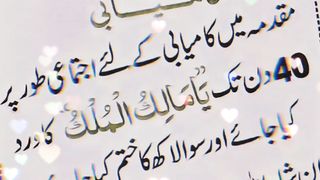 میابی
مقدمہ میں کامیابی کے لئے اجتماعی طور پر
40 دن تک "یَا مَالِکُ الْمُلْکُ" کا ورد
کیا جائے اور سوا لاکھ کا ختم کیا جائے